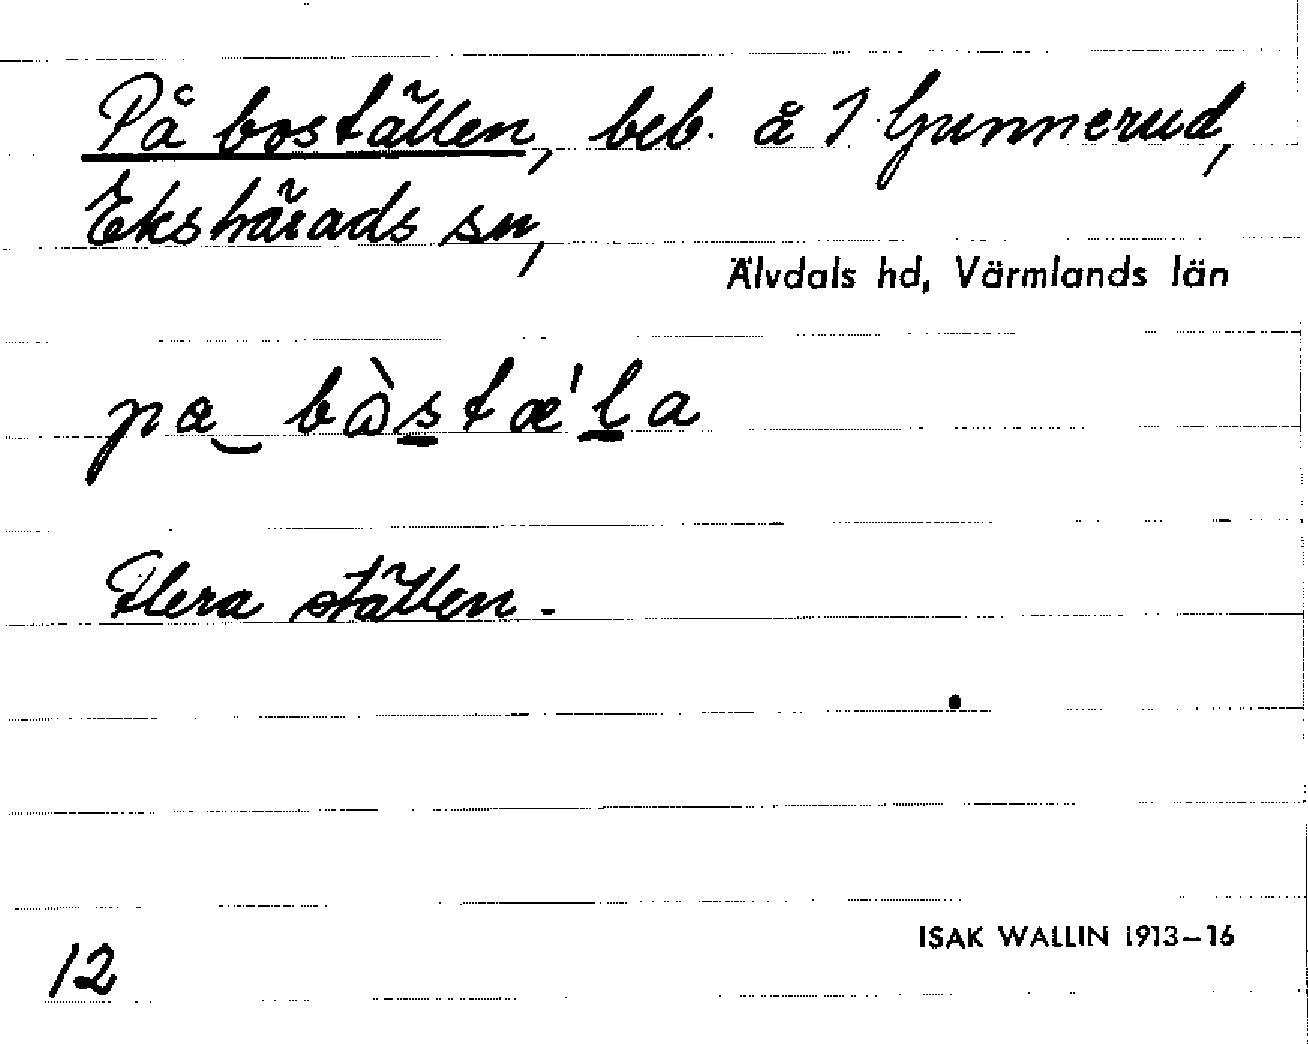 På boställen, beb. å 1 Gunnerud,
Ekshärads sn,
Älvdals hd, Värmlands län
pa‿ bὼstæ'la
Flera ställen.
12
ISAK WALLIN 1913–16